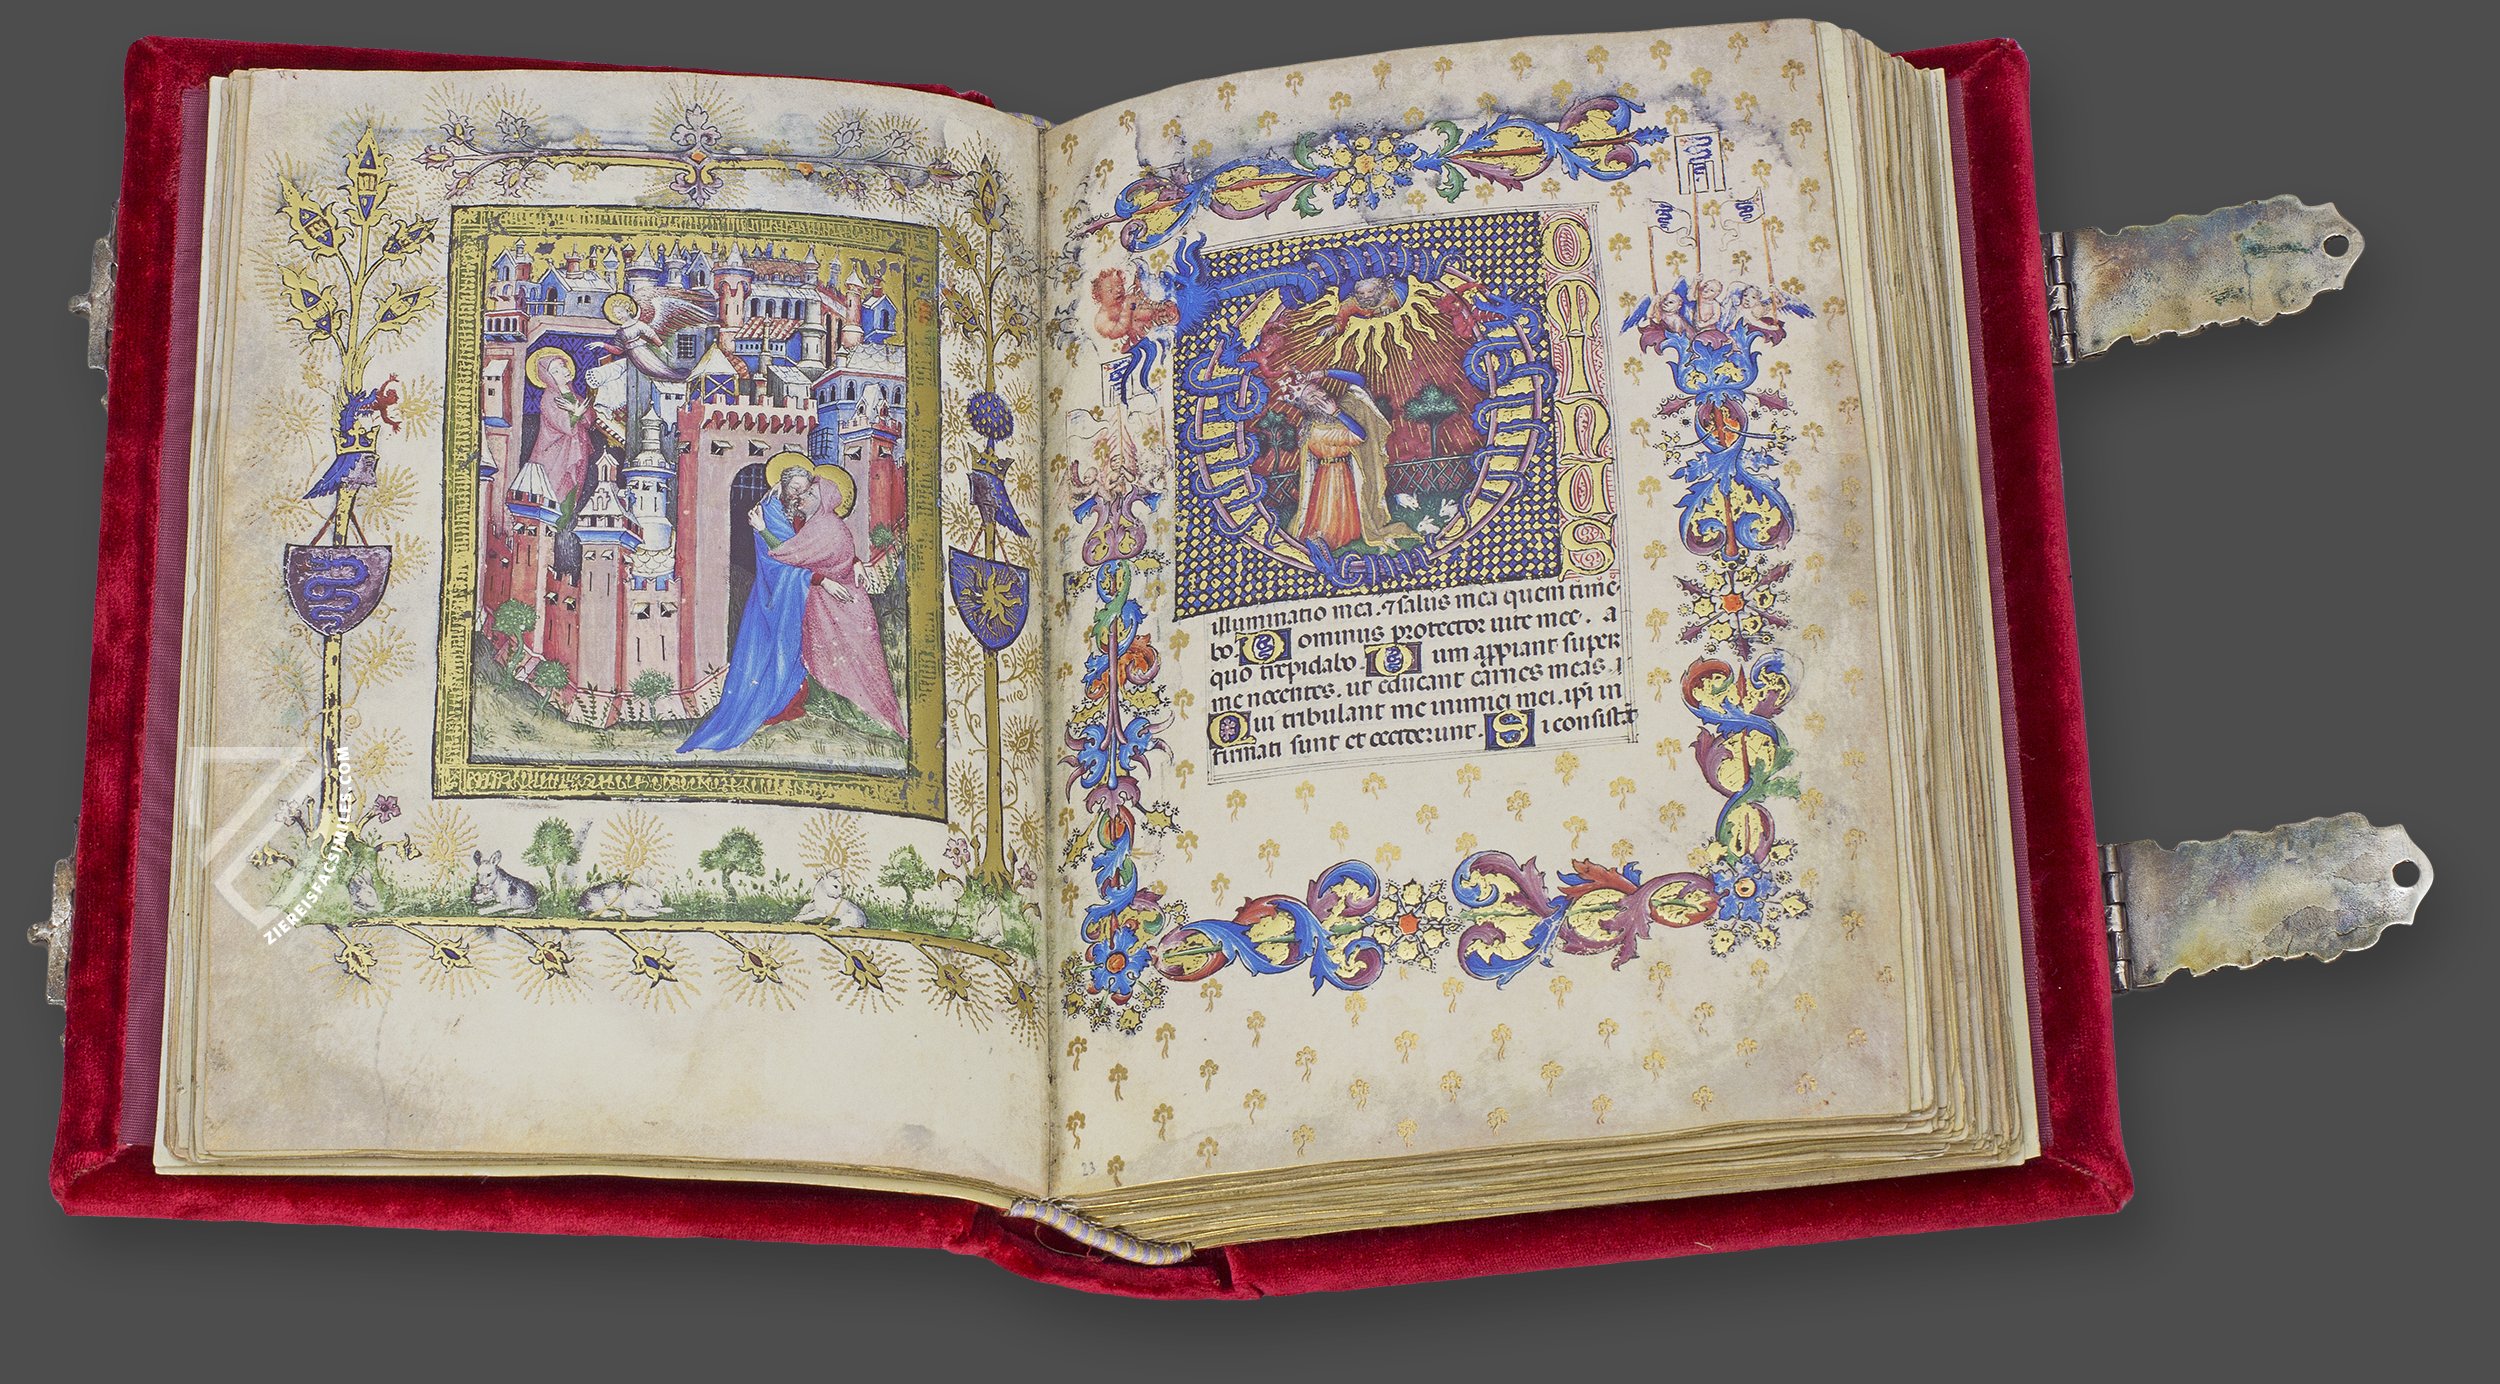 DOMINUS
illuminatio mea. ⁊ salus mea quem time
bo. Dominus protector uite mee. a
quo trepidabo. Dum appiant super
me nocentes. ut educant carnes meas.
Qui tribulant me inimici mei. ipi in
firmati sunt et ceciderunt. Si consistāt
23
ZIEREISFACSIMILES.COM